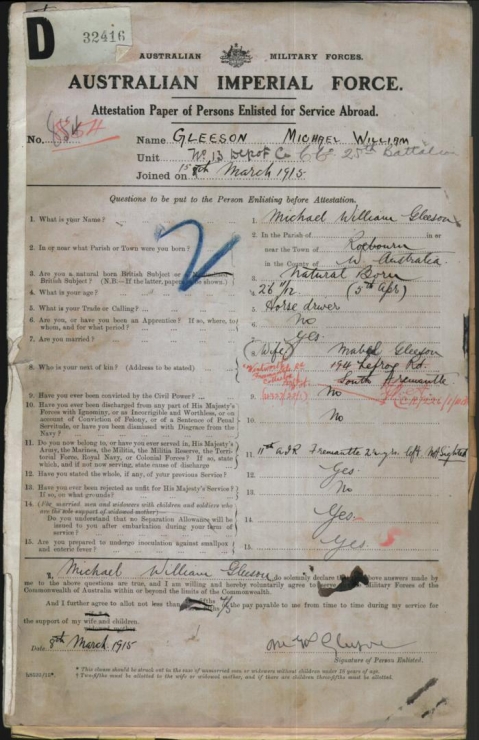 D
32416
AUSTRALIAN MILITARY FORCES.
AUSTRALIAN IMPERIAL FORCE.
Attestation Paper of Persons Enlisted for Service Abroad.
No.
Name GLEESON MICHAEL WILLIAM
Unit No 13 Depot Co 25th Battalion
Joined on March 1915
Questions to be put to the Person Enlisting before Attestation.
2
1. What is your Name? 1. Michael William Gleeson
2. In or near what Parish or Town were you born? 2. In the Parish of in or
near the Town of Roebourn
in the County of W. Australia
3. Are you a natural born British Subject or a
British Subject? (N.B.—If the latter, papers to be shown.) 3. Natural Born
4. What is your age? 4. 26 11/12 (5th Apr)
5. What is your Trade or Calling? 5. Horse driver
6. Are you, or have you been an Apprentice? If so, where, to
whom, and for what period? 6. No
7. Are you married? Yes
8. Who is your next of kin? (Address to be stated) 8. Wife Mabel Gleeson
194 Lefroy Rd.
South Fremantle
9. Have you ever been convicted by the Civil Power? 9. No
10. Have you ever been discharged from any part of His Majesty's
Forces with Ignominy, or as Incorrigible and Worthless, or on
account of Conviction of Felony, or of a Sentence of Penal
Servitude, or have you been dismissed with Disgrace from the
Navy? 10. No
11. Do you now belong to, or have you ever served in, His Majesty's
Army, the Marines, the Militia, the Militia Reserve, the Terri-
torial Force, Royal Navy, or Colonial Forces? If so, state
which, and if not now serving, state cause of discharge 11. Fremantle left
12. Have you stated the whole, if any, of your previous Service? 12. Yes
13. Have you ever been rejected as unfit for His Majesty's Service?
If so, on what grounds? 13. No
14. (For married men and widowers with children and soldiers who
are the sole support of widowed mother)—
Do you understand that no Separation Allowance will be
issued to you after embarkation during your term of
service? 14. Yes
15. Are you prepared to undergo inoculation against smallpox
and enteric fever? 15. Yes S
I, Michael William Gleeson do solemnly declare that the above answers made by
me to the above questions are true, and I am willing and hereby voluntarily agree to serve in the Military Forces of the
Commonwealth of Australia within or beyond the limits of the Commonwealth.
And I further agree to allot not less than the pay payable to me from time to time during my service for
the support of my wife and children.
Date 8th March 1915
Signature of Person Enlisted.
* This clause should be struck out in the case of unmarried men or widowers without children under 18 years of age.
† Two-fifths must be allotted to the wife or widowed mother, and if there are children three-fifths must be allotted.